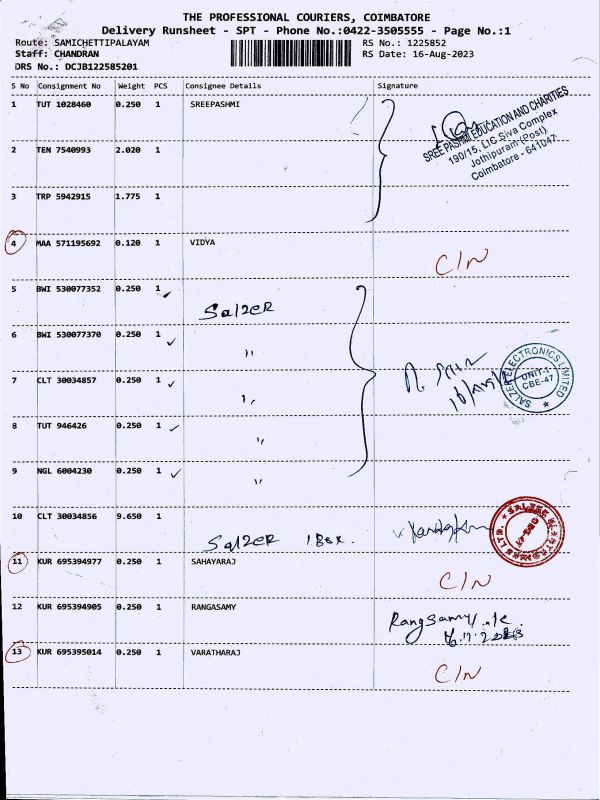 THE PROFESSIONAL COURIERS, COIMBATORE
Delivery Runsheet - SPT - Phone No.:0422-3505555 - Page No.:1
Route: SAMICHETTIPALAYAM RS No.: 1225852
Staff: CHANDRAN RS Date: 16-Aug-2023
DRS No.: DCJB122585201
S No Consignment No Weight PCS Consignee Details Signature
1 TUT 1028460 0.250 1 SREEPASHMI
SREE PASHMI EDUCATION AND CHARITIES
190/15, LIC Siva Complex
Jothipuram (Post)
Coimbatore - 641047
2 TEN 7540993 2.020 1
3 TRP 5942915 1.775 1
4 MAA 571195692 0.120 1 VIDYA C/N
5 BWI 530077352 0.250 1 ✓ Salzer
6 BWI 530077370 0.250 1 ✓ ''
7 CLT 30034857 0.250 1 ✓ ''
SALZER ELECTRONICS LIMITED
UNIT-1
CBE-47
8 TUT 946426 0.250 1 ✓ ''
9 NGL 6004230 0.250 1 ✓ ''
10 CLT 30034856 9.650 1 Salzer 1 Box.
11 KUR 695394977 0.250 1 SAHAYARAJ C/N
12 KUR 695394905 0.250 1 RANGASAMY Rangsamy
13 KUR 695395014 0.250 1 VARATHARAJ C/N